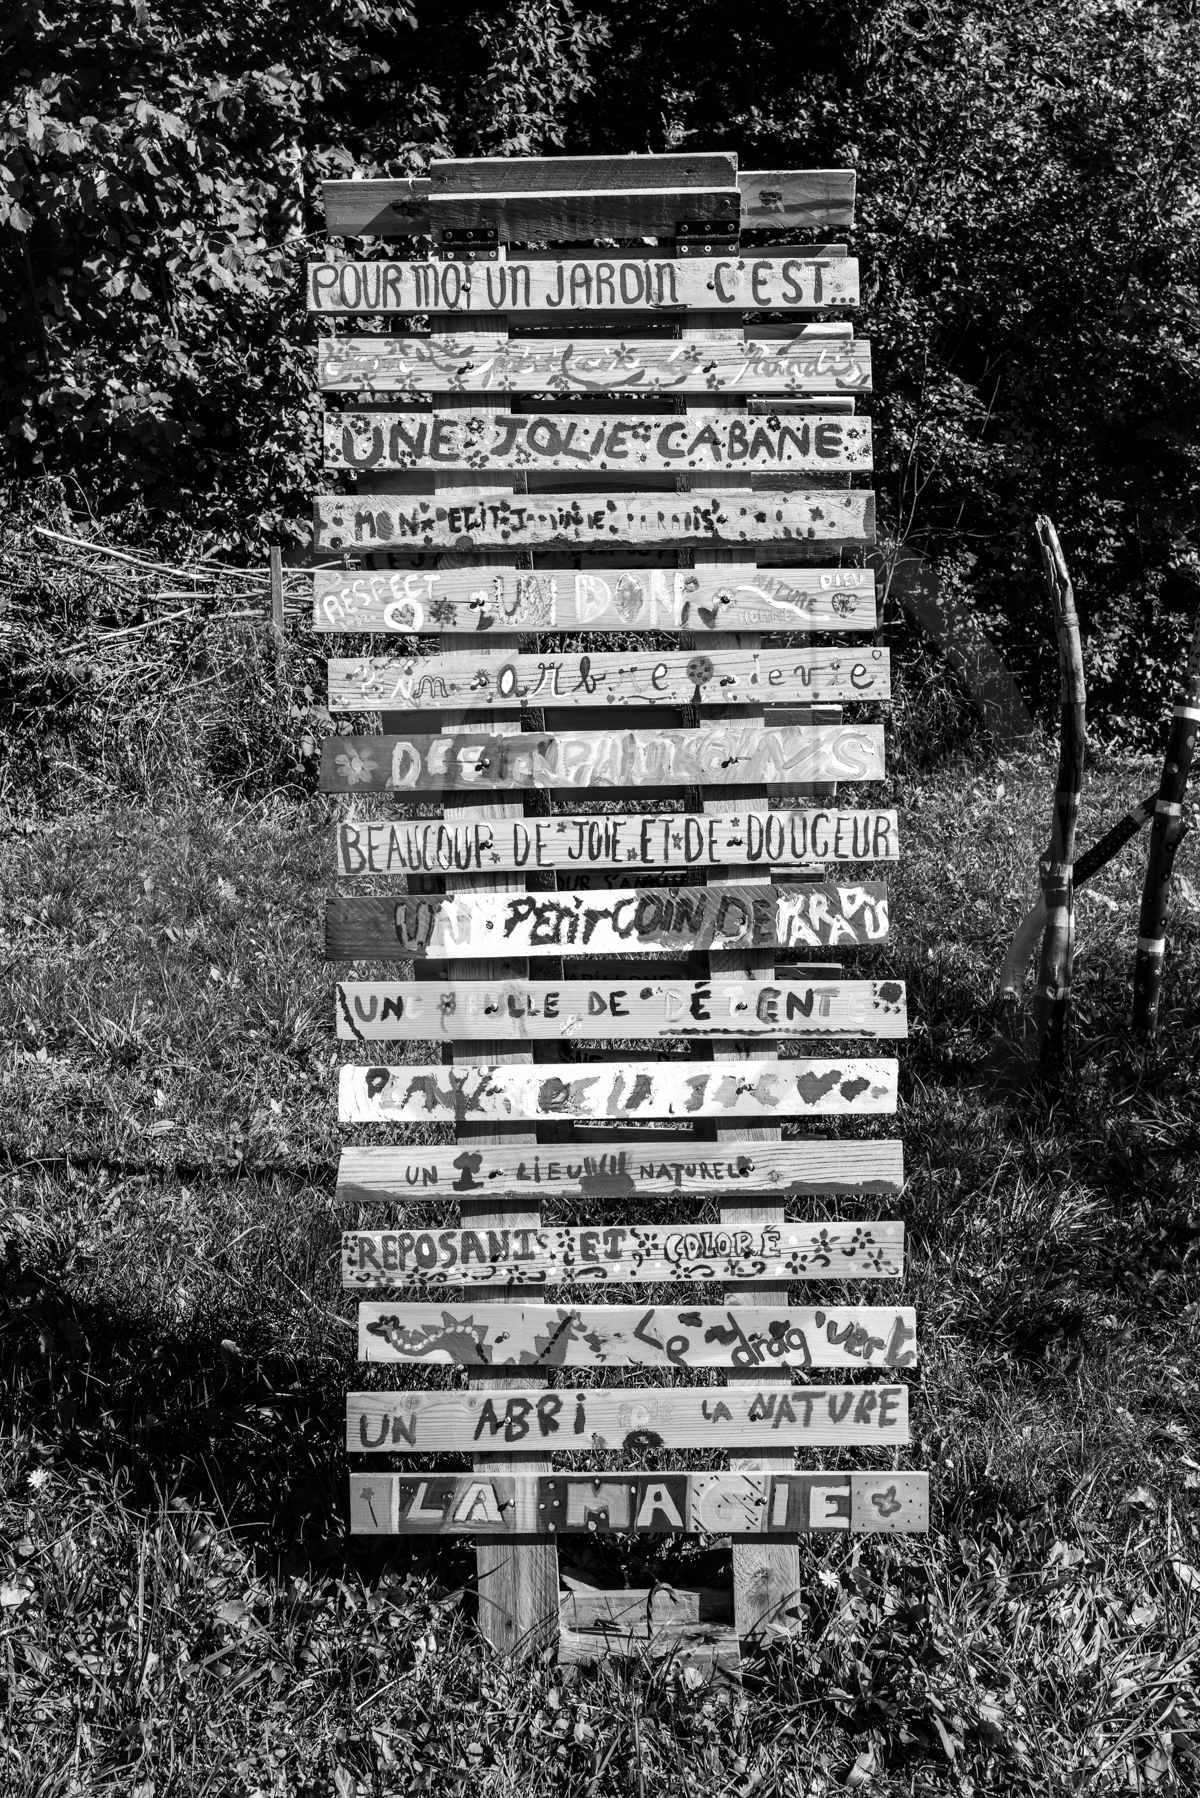 POUR MOI UN JARDIN C'EST...
Paradis
UNE JOLIE CABANE
MON PETIT PARADIS
RESPECT UN DON NATURE HOMME DIEU
Un arbre de vie
DES PAPILLONS
BEAUCOUP DE JOIE ET DE DOUCEUR
UN PETIT COIN DE PARADIS
UNE BULLE DE DÉTENTE
UN LIEU NATUREL
REPOSANT ET COLORÉ
Le drag'vert
UN ABRI POUR LA NATURE
LA MAGIE